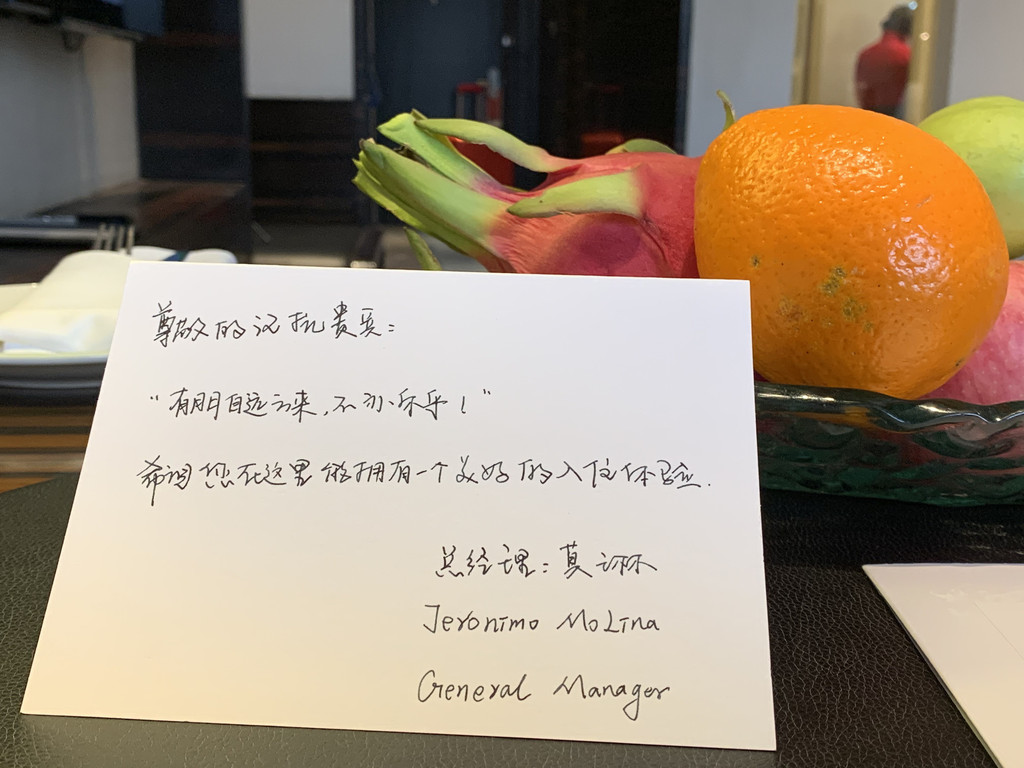 尊敬的汉批贵宾:
"有朋自远方来,不亦乐乎!"
希望您在这里能拥有一个美好的入住体验.
总经理:莫琳
Jeronimo Molina
General Manager